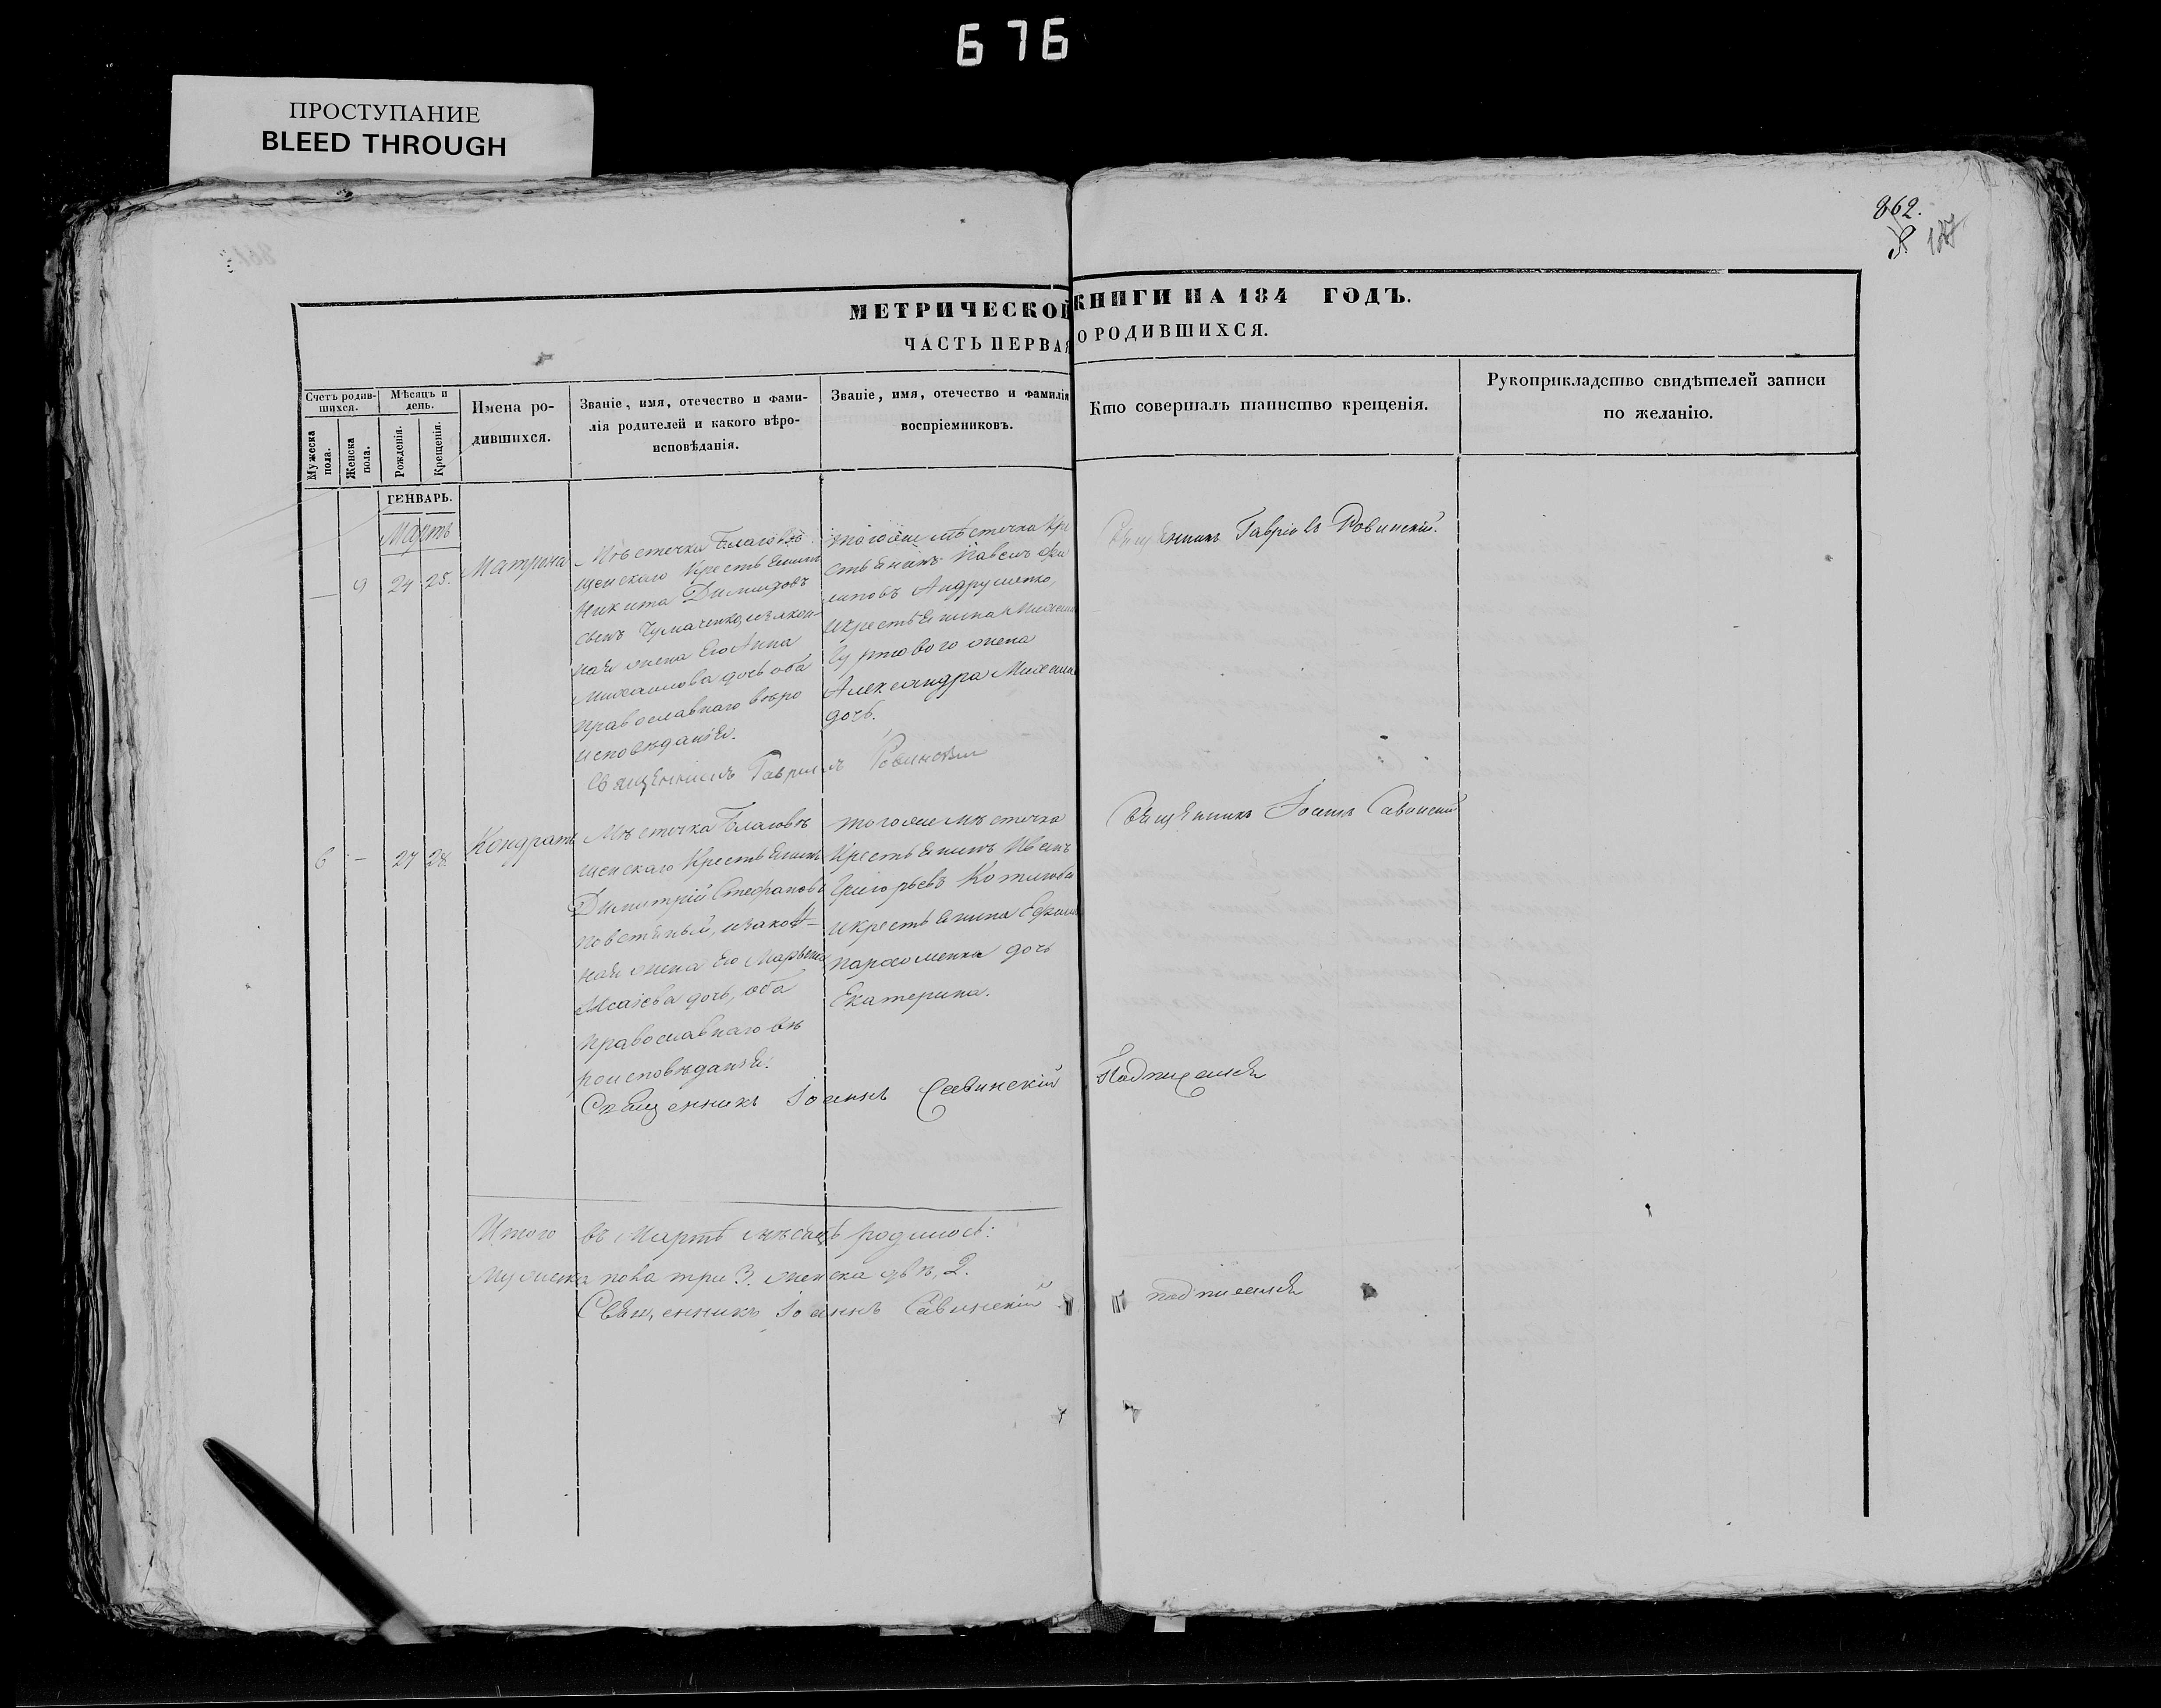 676
ПРОСТУПАНИЕ
BLEED THROUGH
862.
МЕТРИЧЕСКОЙ КНИГИ НА 184 ГОДЪ.
ЧАСТЬ ПЕРВАЯ О РОДИВШИХСЯ.
Счетъ родив-
шихся.
Мужеска
пола.
Женска
пола.
Мѣсяцъ и
день.
Рожденія.
Крещенія.
Имена ро-
дившихся.
Званіе, имя, отечество и фами-
лія родителей и какого вѣро-
исповѣданія.
Званіе, имя, отечество и фамилія
воспріемниковъ.
Кто совершалъ таинство крещенія.
Рукоприкладство свидѣтелей записи
по желанію.
ГЕНВАРЬ.
Мартъ
— 9 24 25. Матрона
Мѣстечка Благовѣ
щенскаго Крестьянинъ
Никита
Чумаченко, изакон-
ная жена Его Анна
Михаилова дочь оба
православнаго вѣро
исповѣданія.
тогоже мѣстечка Кре
стьянинъ Павелъ Фи
липовъ Андрущенко,
икрестьянина
жена
Александра
дочь.
Священникъ Гавріилъ Ровинскій.
Священникъ Гавріилъ Ровинскій
6 — 27 28 Кондратъ
Мѣстечка Благовѣ
щенскаго Крестьянинъ
Димитрій Стефановъ
изакон-
ная жена Его
Исаіева дочь, оба
православнаго вѣ
роисповѣданія.
тогоже мѣстечка
Крестьянинъ Иванъ
Григорьевъ
икрестьянина
Пархоменка дочь
Екатерина.
Священникъ Іоаннъ Савинскій
Священникъ Іоаннъ Савинскій Подписался
Итого въ Мартѣ мѣсяцѣ родилось:
Мужеска пола три 3. женска двѣ, 2.
Священникъ Іоаннъ Савинскій подписался